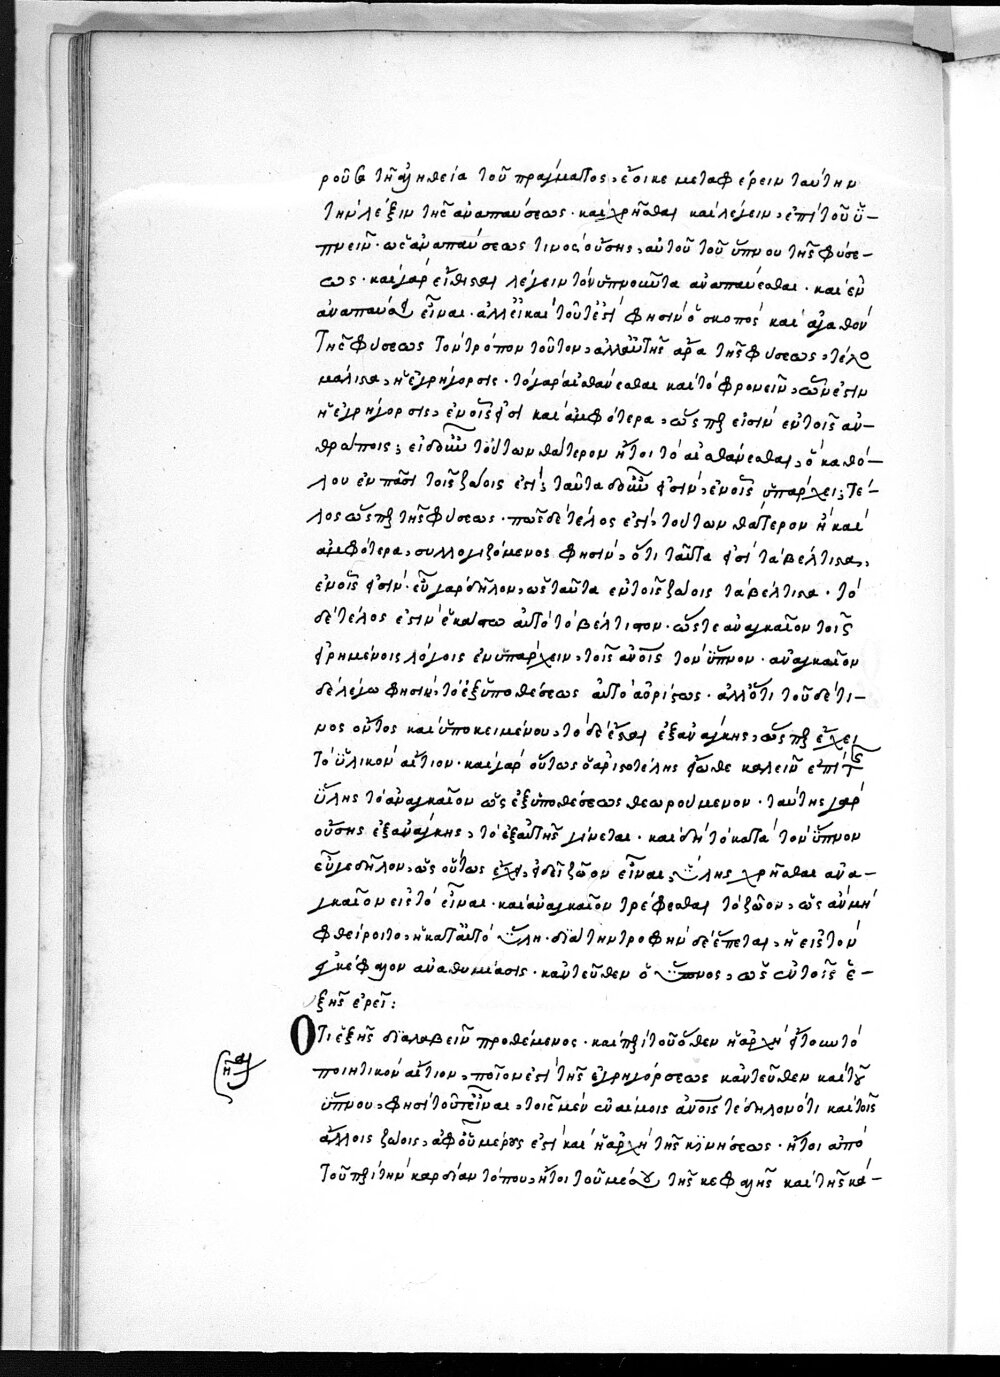 ροῦς τῆ ἀληθεία τοῦ πράγματος, ἔοικε μεταφέρειν ταύτην
τὴν λέξιν τῆς ἀναπαύσεως· καὶ χρῆσθαι καὶ λέγειν, ἐπὶ τοῦ ὕ-
πνειν· ὡς ἀναπαύσεως τινος οὔσης, αὐτοῦ τοῦ ὕπνου τῆς φύσε-
ως· καὶ γὰρ εἴθισται λέγειν τὸν ὑπνοῦντα ἀναπαύεσθαι· καὶ ἐν
ἀναπαύσει εἶναι· ἀλλ' εἰ καὶ τοῦτ' ἐστὶ φησὶν ὁ σκοπὸς καὶ ἀγαθὸν
τῆς φύσεως τὸν τρόπον τοῦτον, ἀλλ' αὐτῆς ἄρα τῆς φύσεως, τέλος
μάλιστα, ἡ ἐγρήγορσις· τὸ γὰρ αἰσθάνεσθαι καὶ τὸ φρονεῖν, ὧν ἐστιν
ἡ ἐγρήγορσις, ἐν οἷς εἰσὶ καὶ ἀμφότερα, ὥσπερ εἰσὶν ἐν τοῖς ἀν-
θρώποις, εἰ δ' οὖν τούτων θάτερον ἤτοι τὸ αἰσθάνεσθαι, ὃ καθό-
λου ἐν πᾶσι τοῖς ζώοις ἐστί, ταῦτα δ' οὖν εἰσίν, ἐν οἷς ὑπάρχει, τέ-
λος ὥσπερ τῆς φύσεως· πῶς δὲ τέλος ἐστὶ, τούτων θάτερον ἢ καὶ
ἀμφότερα, συλλογιζόμενος φησὶν, ὅτι ταῦτα εἰσὶ τὰ βέλτιστα,
ἐν οἷς εἰσίν· εὖ γὰρ δῆλον, ὡς ταῦτα ἐν τοῖς ζώοις τὰ βέλτιστα· τὸ
δὲ τέλος ἐστὶν ἑκάστω αὐτὸ τὸ βέλτιστον· ὥστε ἀναγκαῖον τοῖς
εἰρημένοις λόγοις ἐνυπάρχειν, τοῖς ἀνοις τὸν ὕπνον· ἀναγκαῖον
δὲ λέγω φησὶν, τὸ ἐξ ὑποθέσεως αὐτὸ ἀορίστως· ἀλλ' ὅτι τοῦδέ τι-
νος ὄντος καὶ ὑποκειμένου, τὸ δὲ ἔσται ἐξ ἀνάγκης, ὥσπερ ἔχει
τὸ ὑλικὸν αἴτιον· καὶ γὰρ οὕτως ὁ ἀριστοτέλης εἴωθε καλεῖν ἐπὶ τῆς
ὕλης τὸ ἀναγκαῖον ὡς ἐξ ὑποθέσεως θεωρούμενον· ταύτης γὰρ
οὔσης ἐξ ἀνάγκης, τὸ ἐξ αὐτῆς γίνεται· καὶ δὴ τὸ κατὰ τὸν ὕπνον
εὖ γε δῆλον, ὡς οὕτως ἔχει, εἰ δεῖ ζῶον εἶναι, ὕλης χρῆσθαι ἀνα-
γκαῖον εἰς τὸ εἶναι· καὶ ἀναγκαῖον τρέφεσθαι τὸ ζῶον, ὡς ἂν μὴ
φθείροιτο, ἡ κατ' αὐτὸ ὕλη· διὰ τὴν τροφὴν δὲ ἕπεται, ἡ εἰς τὸν
ἐγκέφαλον ἀναθυμίασις· κἀντεῦθεν ὁ ὕπνος, ὡς ἐν τοῖς ἑ-
ξῆς ἐρεῖ:
Ὅτι ἑξῆς διαλαβεῖν προθέμενος· καὶ περὶ τοῦ ὅθεν ἡ ἀρχὴ ἤτοι τὸ
ποιητικὸν αἴτιον, ποῖον ἐστὶ τῆς ἐγρηγόρσεως κἀντεῦθεν καὶ τοῦ
ὕπνου, φησὶ τοῦτ' εἶναι, τοῖς μὲν ἐναίμοις ἀνοις τε δηλονότι καὶ τοῖς
ἄλλοις ζώοις, ἀφ' οὗ μέρους ἐστὶ καὶ ἡ ἀρχὴ τῆς κινήσεως· ἤτοι ἀπὸ
τοῦ περὶ τὴν καρδίαν τόπου, ἤτοι τοῦ μέσου τῆς κεφαλῆς καὶ τῆς κά-